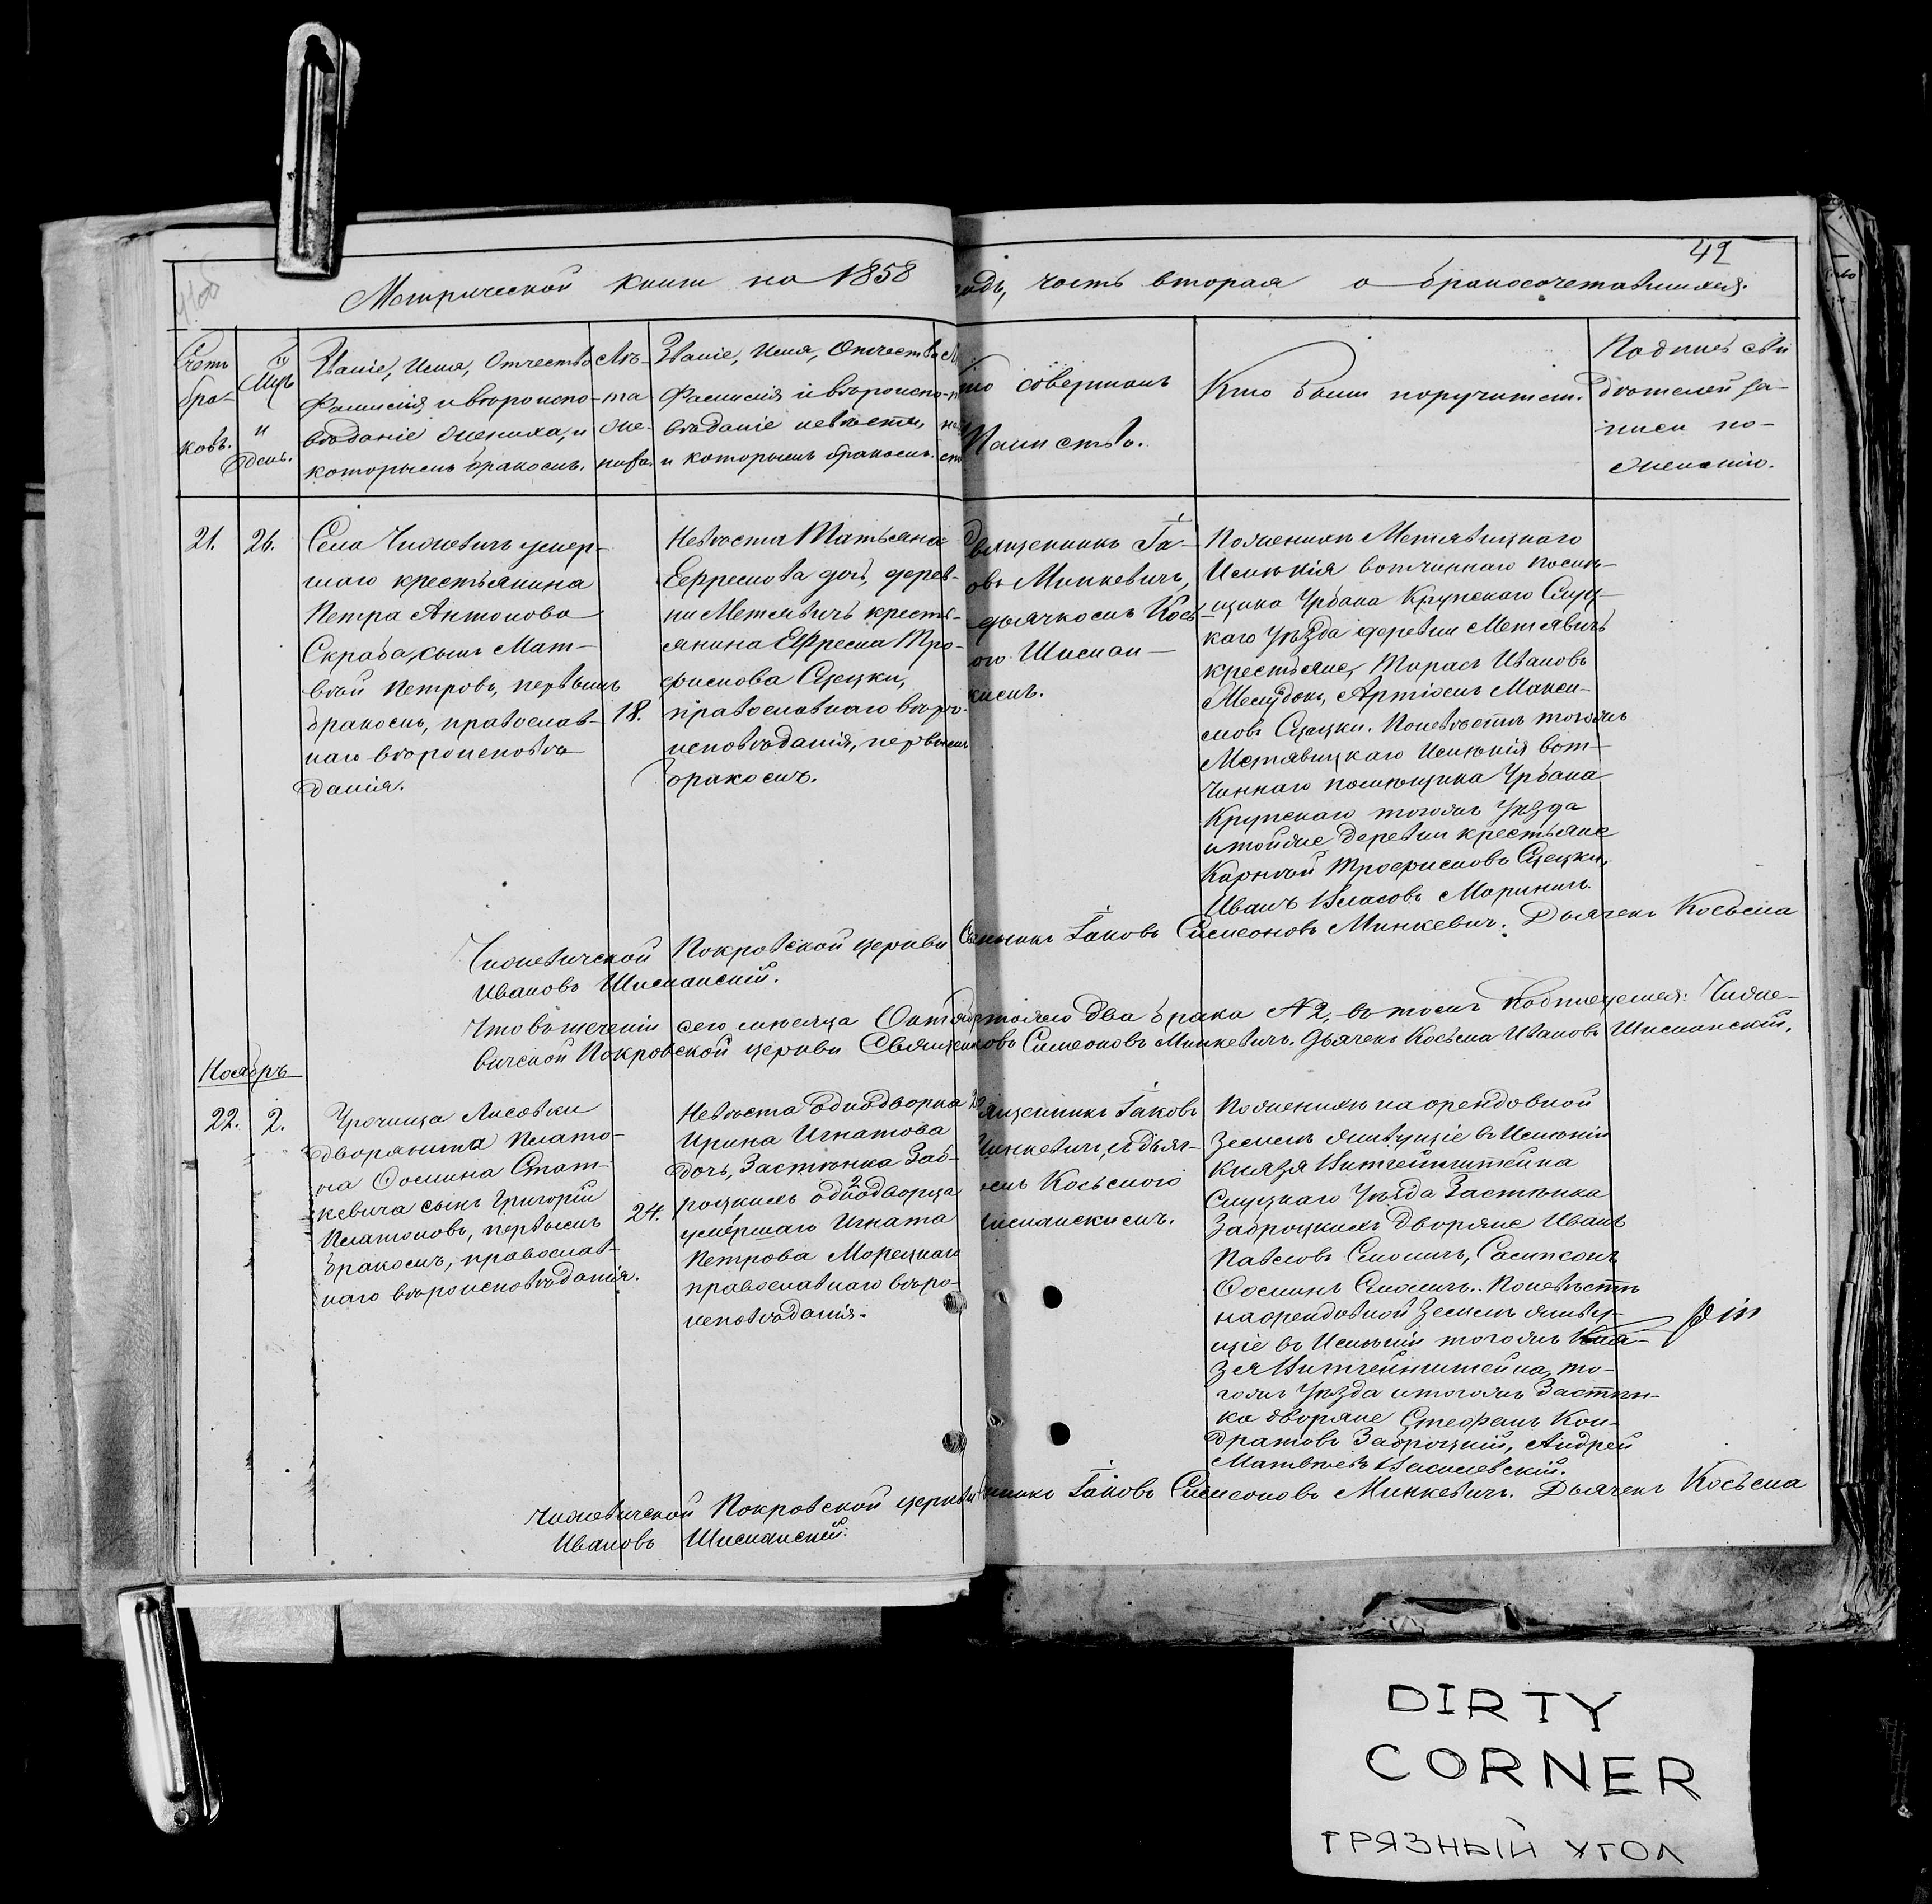 42
Метрической книги на 1858 годъ, часть вторая о бракосочетавшихся.
Счетъ
бра-
ковъ.
Мцъ
и
день.
Званіе, Имя, Отчество
Фамилія и вѣроиспо-
вѣданіе жениха, и
которымъ бракомъ.
Лѣ-
та
же-
ниха.
Званіе, Имя, Отчество
Фамилія и вѣроиспо-
вѣданіе невѣсты,
и которымъ бракомъ.
Кто совершалъ
Таинство.
Кто были поручители.
Подпись сви
дѣтелей за-
писи по-
желанію.
21.
26.
Села Чижевичъ умер-
шаго крестьянина
Петра Антонова
Скраба, сынъ Мат-
вѣй Петровъ, первымъ
бракомъ, православ-
наго вѣроисповѣ
данія.
18.
Невѣста Татьяна
Ефремова дочь, дерев-
ни Метявичъ кресть-
янина Ефрема Тро-
фимова Сцецки,
православнаго вѣро-
исповѣданія, первымъ
бракомъ.
Священникъ Іа-
ковъ Минкевичъ,
дьячкомъ Кось
Шиман-
скимъ.
По женихѣ Метявицкаго
Имѣнія вотчиннаго помѣ-
щика Урбана Крупскаго Слуц-
каго Уѣзда деревни Метявичъ
крестьяне, Тарасъ Ивановъ
Артіомъ Макси-
мовъ Сцецки. По невѣстѣ тогожъ
Метявицкаго Имѣнія вот-
чиннаго помѣщика Урбана
Крупскаго тогожъ Уѣзда
и тойже деревни крестьяне
Карнѣй Трофимовъ Сцецки,
Иванъ Власовъ Маринич.
Чижевичской Покровской церкви Священникъ Іаковъ Симеоновъ Минкевичъ. Дьячекъ Косьма
Ивановъ Шиманскій.
Что въ теченіи сего мѣсяца Октября только два брака №2, въ томъ подписуемся: Чиже-
вичской Покровской церкви Священникъ Іаковъ Симеоновъ Минкевичъ. Дьячекъ Косьма Ивановъ Шиманскій.
Ноябрь
22.
2.
Урочища Лисовки
дворянина Плато-
на Фомина Стат-
кевича сынъ Григорій
Платоновъ, первымъ
бракомъ, православ-
наго вѣроисповѣданія.
24.
Невѣста однодворка
Ирина Игнатова
дочь, Застѣнка Заб-
роцкихъ однодворца
умершаго Игната
Петрова Морецкаго
православнаго вѣро-
исповѣданія.
Священникъ Іаковъ
Минкевичъ, съ дьяч-
комъ Косьмою
Шиманскимъ.
По женихѣ на орендовной
землѣ живущіе въ Имѣніи
Князя Витгенштейна
Слуцкаго Уѣзда Застѣнка
Заброцкихъ Дворяне Иванъ
Павловъ Смоличъ, Сампсонъ
Фоминъ Смоличъ. По невѣстѣ
на орендовной землѣ живу-
щіе въ Имѣніи тогожъ Кня-
зя Витгенштейна, то-
гожъ Уѣзда и тогожъ Застѣн-
ка дворяне Стефанъ Кон-
дратовъ Заброцкій, Андрей
Матвѣевъ Василевскій.
Чижевичской Покровской церкви Священникъ Іаковъ Симеоновъ Минкевичъ. Дьячекъ Косьма
Ивановъ Шиманскій.
DIRTY
CORNER
ГРЯЗНЫЙ УГОЛ